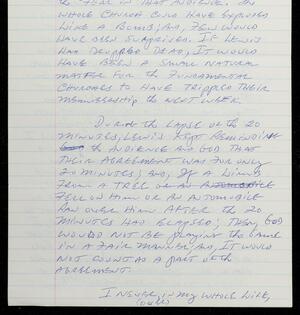 the fear in that audience. The
whole church could have exploded
like a bomb; and, few would
have been surprised. If Lewis
had dropped dead, it would
have been a small natural
matter for the fundamental
churches to have tripled their
membership the next week.
During the lapse of the 20
minutes, Lewis kept reminding
the audience and God that
their agreement was for only
20 minutes; and, if a limb
from a tree or an automobile
fell on him or an automobile
ran over him after the 20
minutes had elapsed; then God
would not be playing the game
in a fair manner; and, it would
not count as a part of the
agreement.
I never, in my whole life,